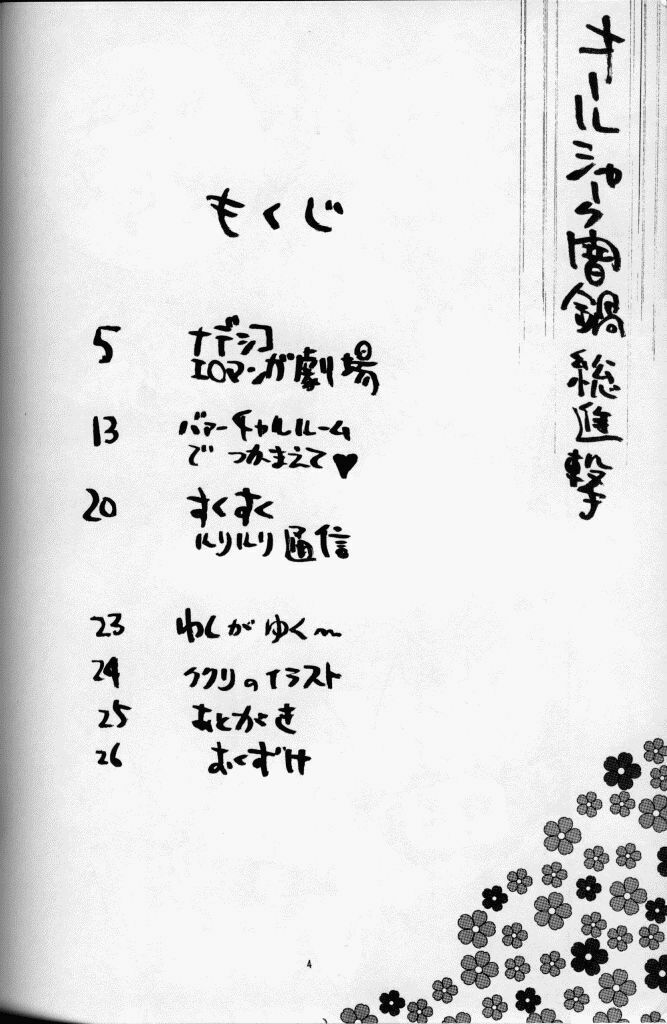 オールシャーク闇鍋総進撃
もくじ
5 ナデシコ
エロマンガ劇場
13 バァーチャルルーム
でつかまえて♥
20 すくすく
ルリルリ通信
23 わしがゆく〜
24 ククリのイラスト
25 あとがき
26 おくずけ
4